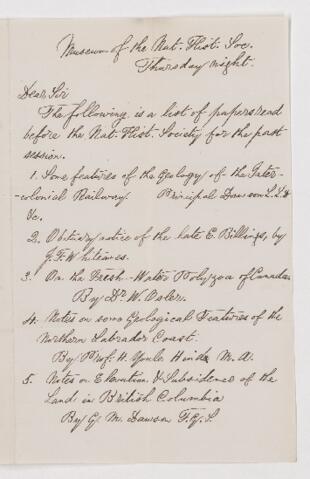 Museum of the Nat. Hist. Soc.
Thursday night.
Dear Sir
The following is a list of papers read
before the Nat. Hist. Society for the past
session.
1. Some features of the Geology of the Inter-
-colonial Railway. Principal Dawson L.L.D
&c.
2. Obituary notice of the late E. Billings, by
J. F. Whiteaves.
3. On the Fresh-Water Polyzoa of Canada
By Dr. W. Osler.
4. Notes on some Geological Features of the
Northern Labrador Coast.
By Prof. H. Youle Hind M. A.
5. Notes on Elevation & Subsidence of the
Land in British Columbia
By G. M. Dawson F. G. S.